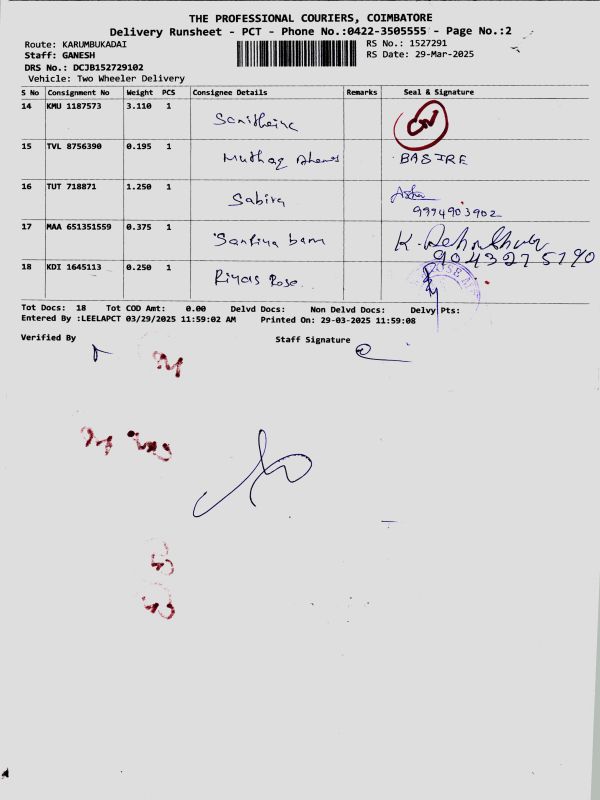 THE PROFESSIONAL COURIERS, COIMBATORE
Delivery Runsheet - PCT - Phone No.:0422-3505555 - Page No.:2
Route: KARUMBUKADAI RS No.: 1527291
Staff: GANESH RS Date: 29-Mar-2025
DRS No.: DCJB152729102
Vehicle: Two Wheeler Delivery
S No Consignment No Weight PCS Consignee Details Remarks Seal & Signature
14 KMU 1187573 3.110 1
15 TVL 8756390 0.195 1 BASIRE
16 TUT 718871 1.250 1 Sabira
9994903902
17 MAA 651351559 0.375 1 K.
9043275190
18 KDI 1645113 0.250 1 Riyas Rose
Tot Docs: 18 Tot COD Amt: 0.00 Delvd Docs: Non Delvd Docs: Delvy Pts:
Entered By :LEELAPCT 03/29/2025 11:59:02 AM Printed On: 29-03-2025 11:59:08
Verified By Staff Signature